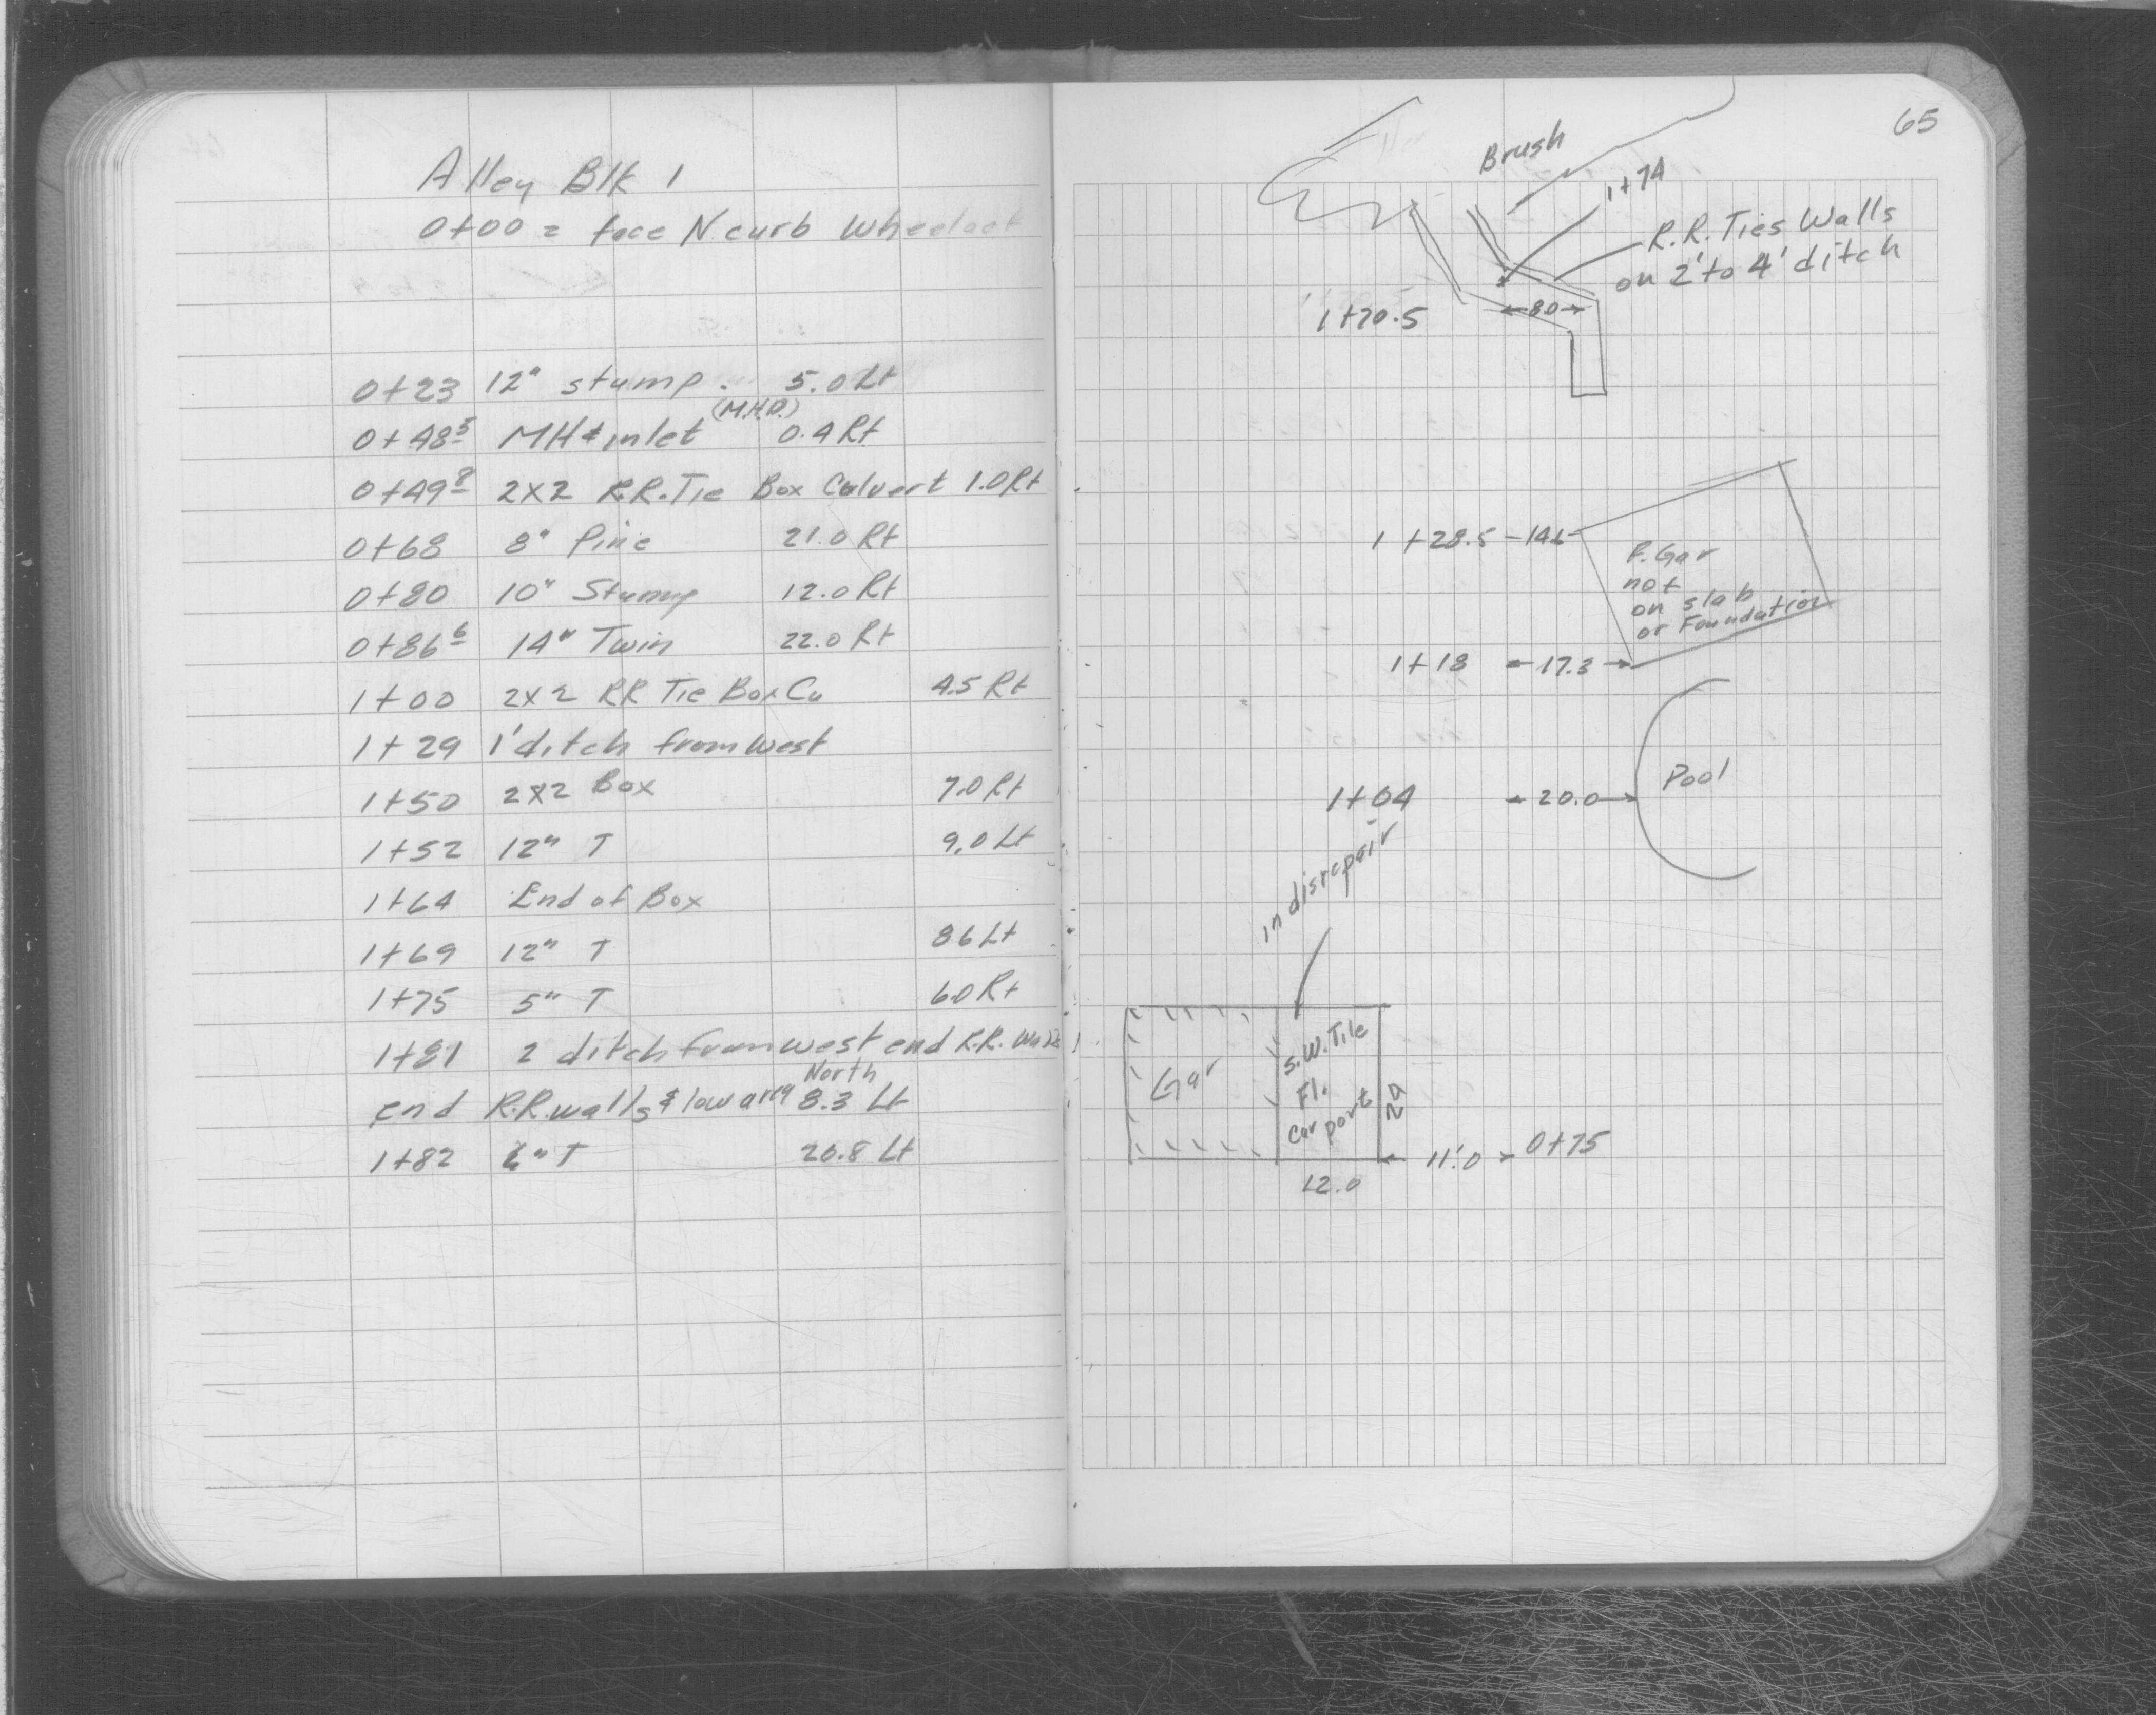 Alley Blk 1
0+00 = face N curb Wheelock
0+23 12" stump. 5.0 Lt
(M.H.D.)
0+48⁵ MH & inlet 0.4 Rt
0+49⁸ 2X2 R.R. Tie Box Culvert 1.0 Rt
0+68 8" Pine 21.0 Rt
0+80 10" Stump 12.0 Rt
0+86⁶ 14" Twin 22.0 Rt
1+00 2X2 RR Tie Box Cu 4.5 Rt
1+29 1' ditch from West
1+50 2X2 Box 7.0 Rt
1+52 12" T 9.0 Lt
1+64 End of Box
1+69 12" T 8.6 Lt
1+75 5" T 6.0 Rt
1+81 2 ditch from west end R.R. Walls
North
end R.R. walls & low area 8.3 Lt
1+82 6" T 20.8 Lt
65
Brush
1+74
R.R. Ties Walls
on 2' to 4' ditch
8.0
1+70.5
1+28.5 -14.6-
F. Gar
not
on slab
or Foundation
1+18 17.3
Pool
1+04 20.0
in disrepair
Gar
S.W. Tile
Fl.
Carport
24
11.0 0+75
12.0